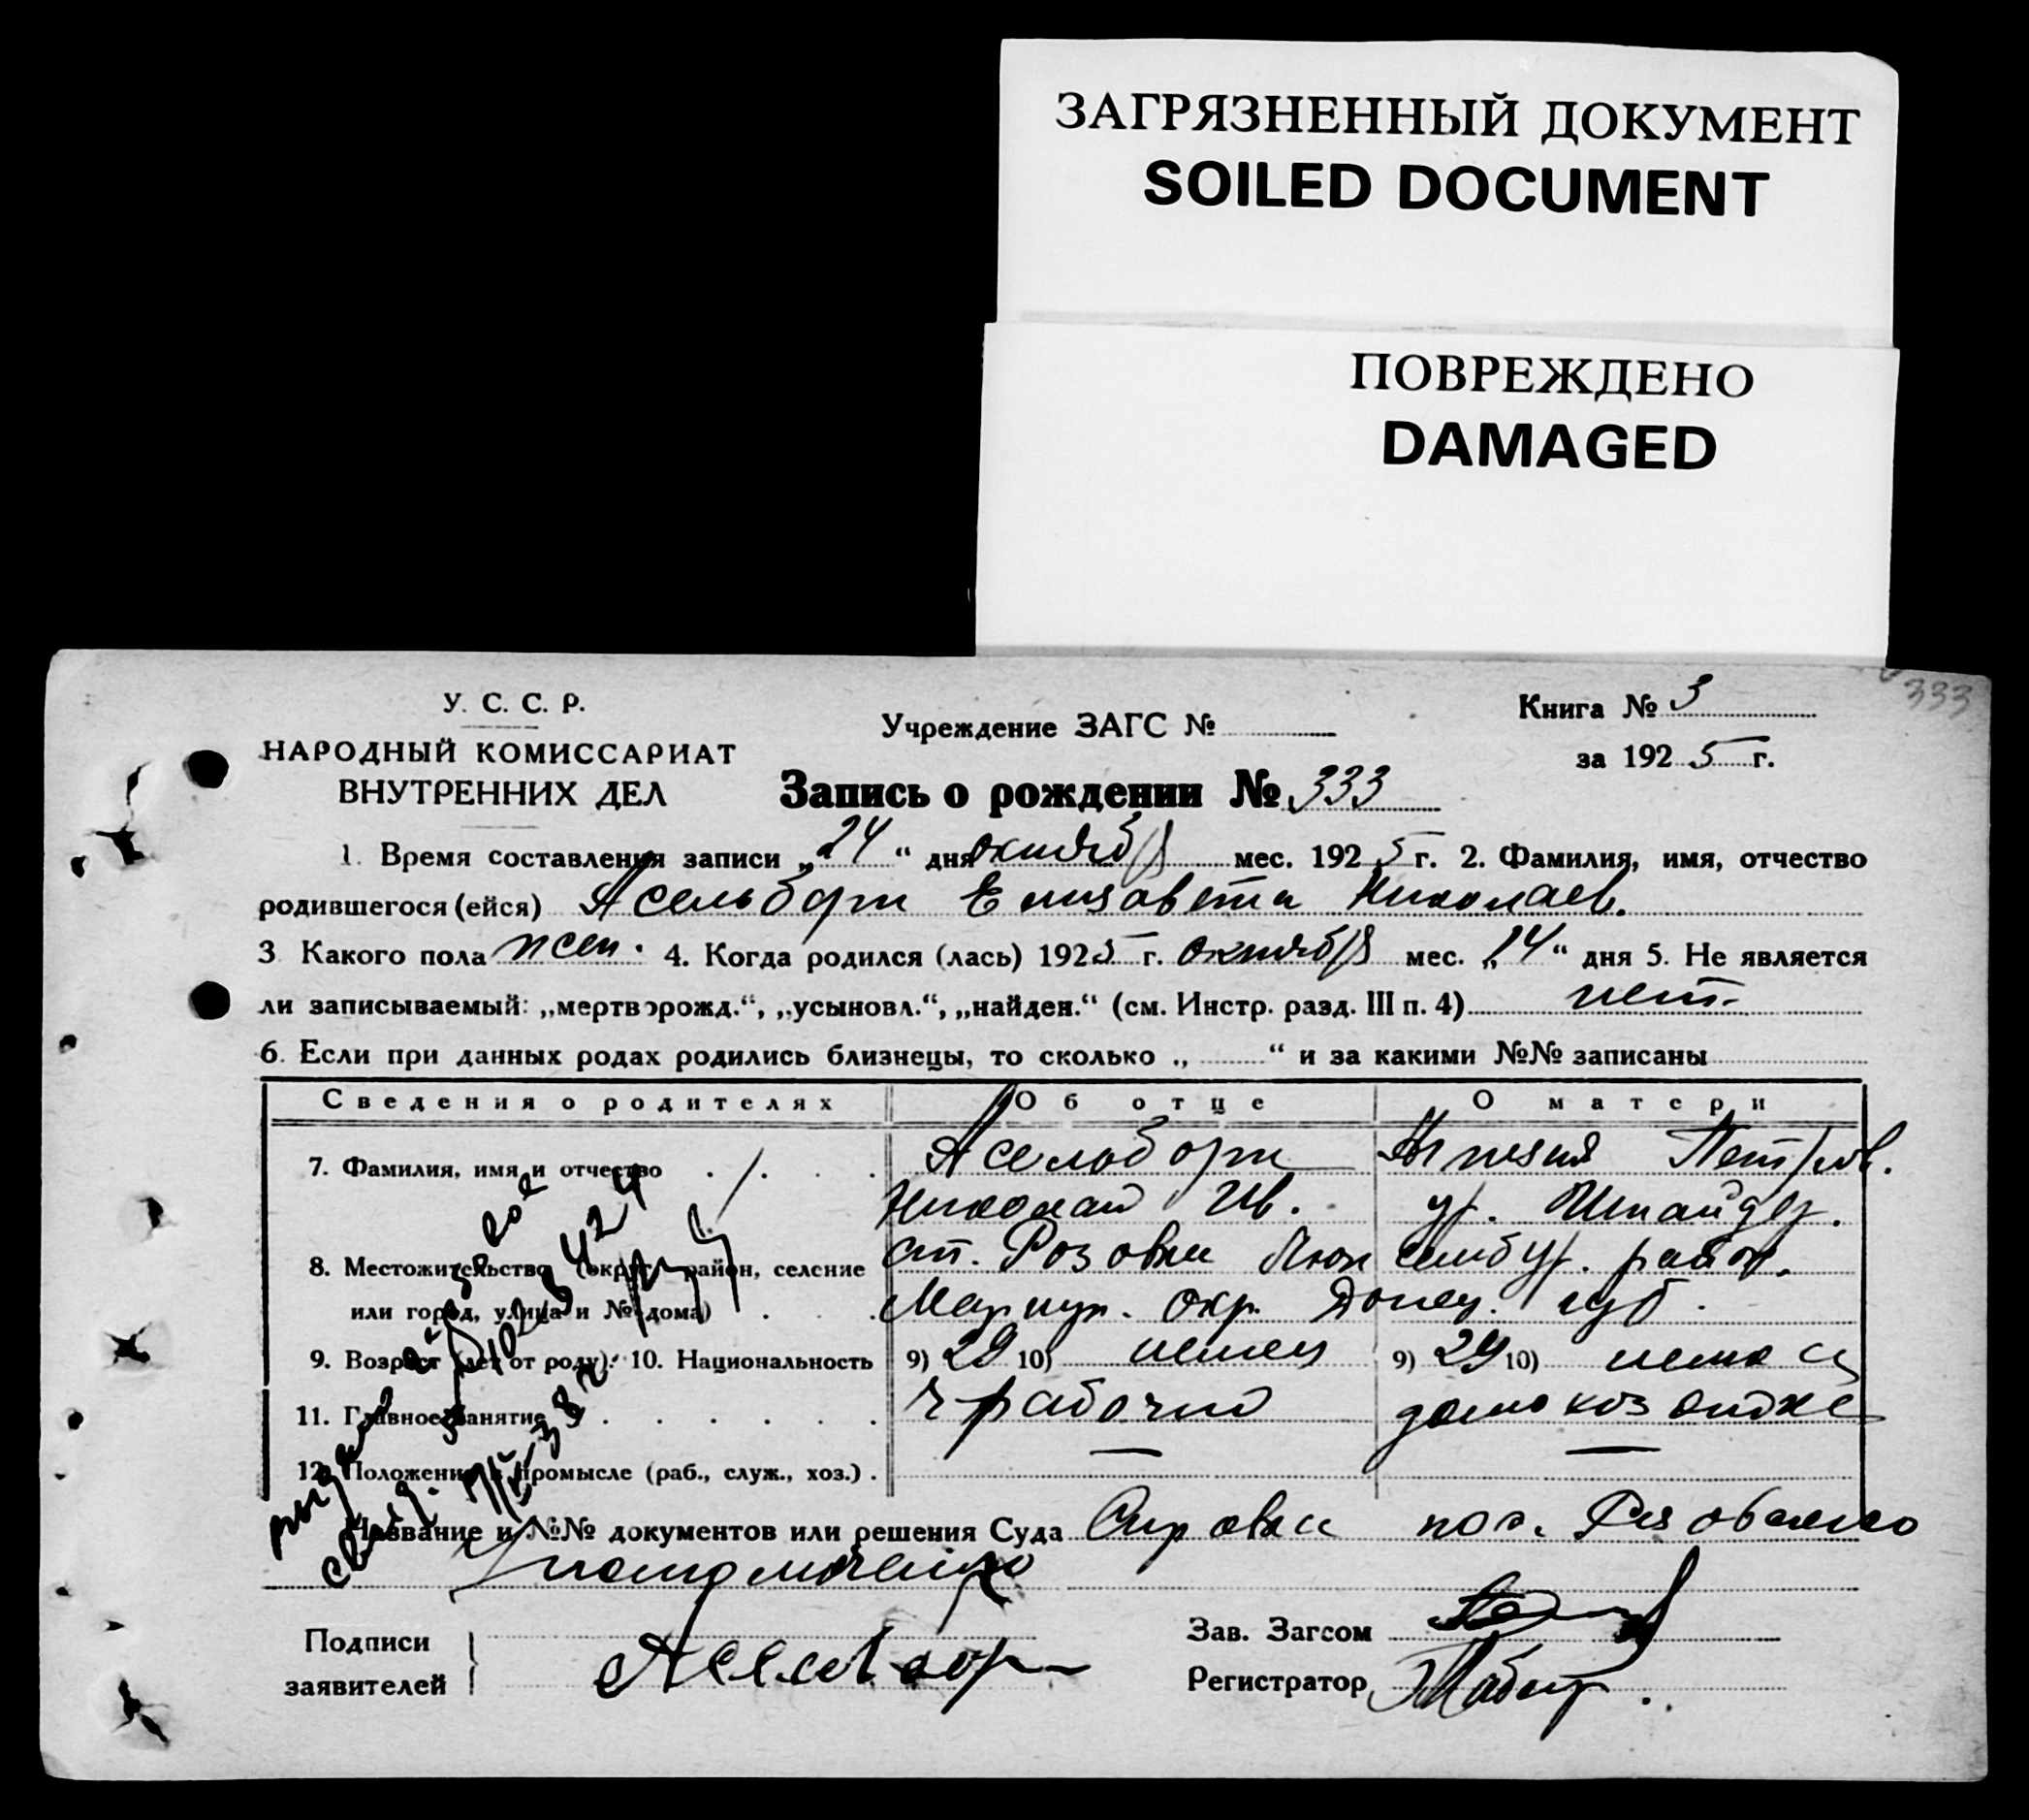 ЗАГРЯЗНЕННЫЙ ДОКУМЕНТ
SOILED DOCUMENT
ПОВРЕЖДЕНО
DAMAGED
333
У. С. С. Р.
НАРОДНЫЙ КОМИССАРИАТ
ВНУТРЕННИХ ДЕЛ
Учреждение ЗАГС №
Книга № 3
за 1925 г.
Запись о рождении № 333
1. Время составления записи „24“ дня октября мес. 1925 г. 2. Фамилия, имя, отчество
родившегося (ейся) Асельборн Елизавета Николаев.
3. Какого пола жен. 4. Когда родился (лась) 1925 г. октября мес. „14“ дня 5. Не является
ли записываемый: „мертворожд.“, „усыновл.“, „найден.“ (см. Инстр. разд. III п. 4) нет.
6. Если при данных родах родились близнецы, то сколько „ “ и за какими №№ записаны
Сведения о родителях Об отце О матери
7. Фамилия, имя и отчество Асельборн Петров.
Николай Ив. ур. Шнайдер.
8. Местожительство (округ, район, селение ст. Розовка Люксембург. район.
или город, улица и № дома) Мариуп. окр. Донец. губ.
9. Возраст (лет от роду). 10. Национальность 9) 29 10) немец 9) 29 10) немка
11. Главное занятие рабочий домохозяйке
12. Положение в промысле (раб., служ., хоз.) — —
Название и №№ документов или решения Суда Справка пос. Розовского
Уполномоченного
Подписи
заявителей
Асельборн
Зав. Загсом
Регистратор